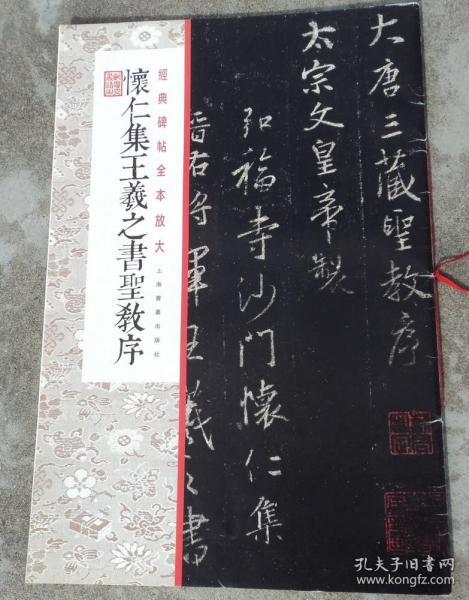 大唐三藏聖教序
太宗文皇帝製
弘福寺沙門懷仁集
晉右将軍王羲之書
經典碑帖全本放大
懷仁集王羲之書聖教序
上海書畫出版社
孔夫子旧书网
www.kongfz.com